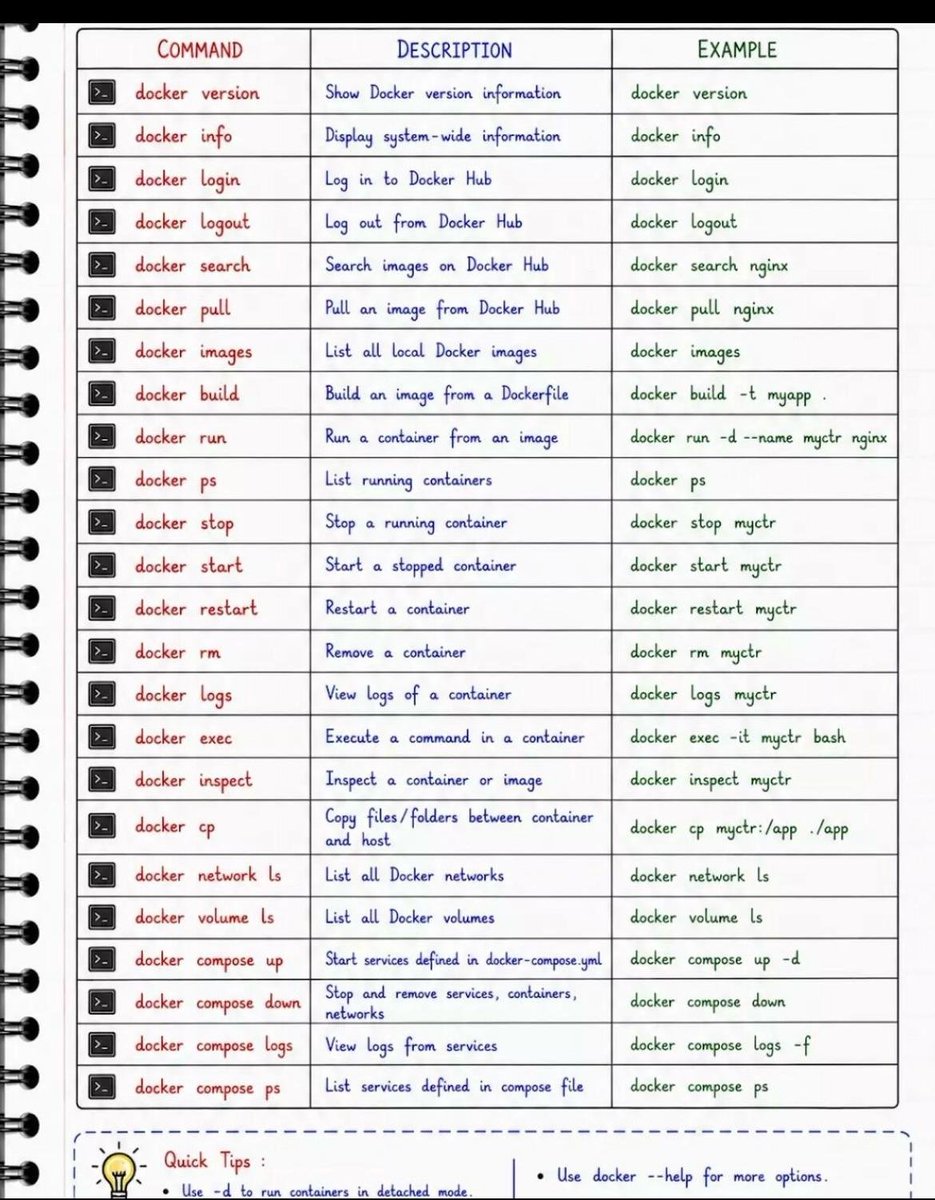 COMMAND DESCRIPTION EXAMPLE
docker version Show Docker version information docker version
docker info Display system-wide information docker info
docker login Log in to Docker Hub docker login
docker logout Log out from Docker Hub docker logout
docker search Search images on Docker Hub docker search nginx
docker pull Pull an image from Docker Hub docker pull nginx
docker images List all local Docker images docker images
docker build Build an image from a Dockerfile docker build -t myapp .
docker run Run a container from an image docker run -d --name myctr nginx
docker ps List running containers docker ps
docker stop Stop a running container docker stop myctr
docker start Start a stopped container docker start myctr
docker restart Restart a container docker restart myctr
docker rm Remove a container docker rm myctr
docker logs View logs of a container docker logs myctr
docker exec Execute a command in a container docker exec -it myctr bash
docker inspect Inspect a container or image docker inspect myctr
docker cp Copy files/folders between container
and host docker cp myctr:/app ./app
docker network ls List all Docker networks docker network ls
docker volume ls List all Docker volumes docker volume ls
docker compose up Start services defined in docker-compose.yml docker compose up -d
docker compose down Stop and remove services, containers,
networks docker compose down
docker compose logs View logs from services docker compose logs -f
docker compose ps List services defined in compose file docker compose ps
Quick Tips :
• Use -d to run containers in detached mode.
• Use docker --help for more options.